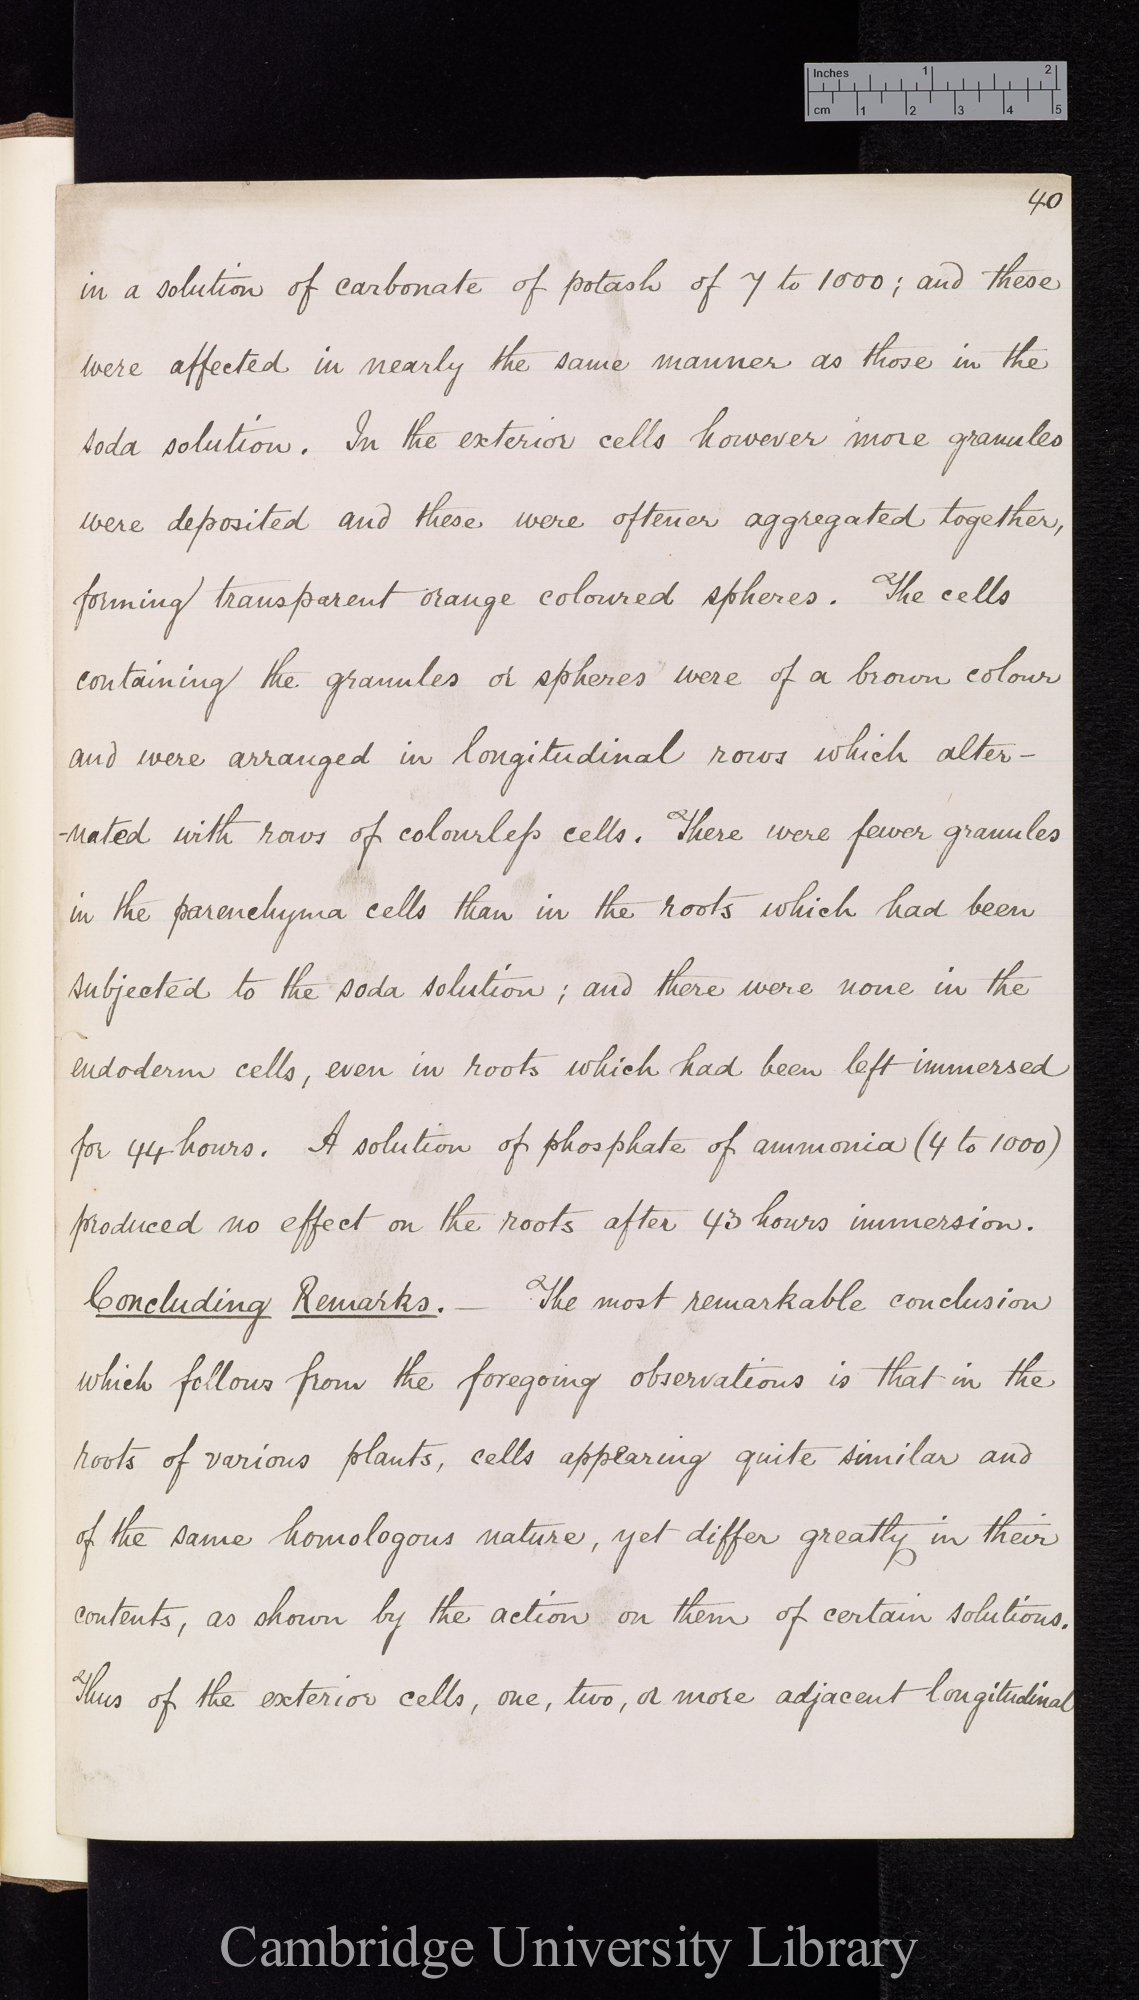 Inches 1 2
cm 1 2 3 4 5
40
in a solution of carbonate of potash of 7 to 1000; and these
were affected in nearly the same manner as those in the
soda solution. In the exterior cells however more granules
were deposited and these were oftener aggregated together,
forming transparent orange coloured spheres. The cells
containing the granules or spheres were of a brown colour
and were arranged in longitudinal rows which alter-
-nated with rows of colourless cells. There were fewer granules
in the parenchyma cells than in the roots which had been
subjected to the soda solution; and there were none in the
endoderm cells, even in roots which had been left immersed
for 44 hours. A solution of phosphate of ammonia (4 to 1000)
produced no effect on the roots after 43 hours immersion.
Concluding Remarks. — The most remarkable conclusion
which follows from the foregoing observations is that in the
roots of various plants, cells appearing quite similar and
of the same homologous nature, yet differ greatly in their
contents, as shown by the action on them of certain solutions.
Thus of the exterior cells, one, two, or more adjacent longitudinal
Cambridge University Library